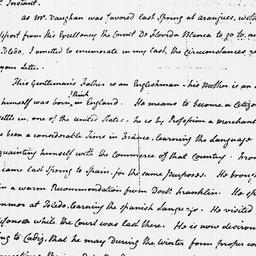 Instant.
as Mr. Vaughan was favored last Spring at aranques, with
Report from his Excellency the Count De Florida Blanca to go to, an
Toledo, I omitted to enumerate in my last, the circumstances re
your Letter.
This Gentleman's Father is an Englishman - his Mother is an a
himself was born, I think in England. He means to become a Citizen
settle in, one of the united States - he is by Profession a merchant
has been a considerable Time in France, learning the Language
acquainting himself with the Commerce of that Country. From
came last Spring to Spain, for the same Purposes. He brough
in a warm Recommendation from Doctr. Franklin. He sp
ummer at Toledo, learning the Spanish Language. He visited
ldefonso while the Court was last there. He is now desirous
ing to Cadiz, that he may during the Winter form proper con